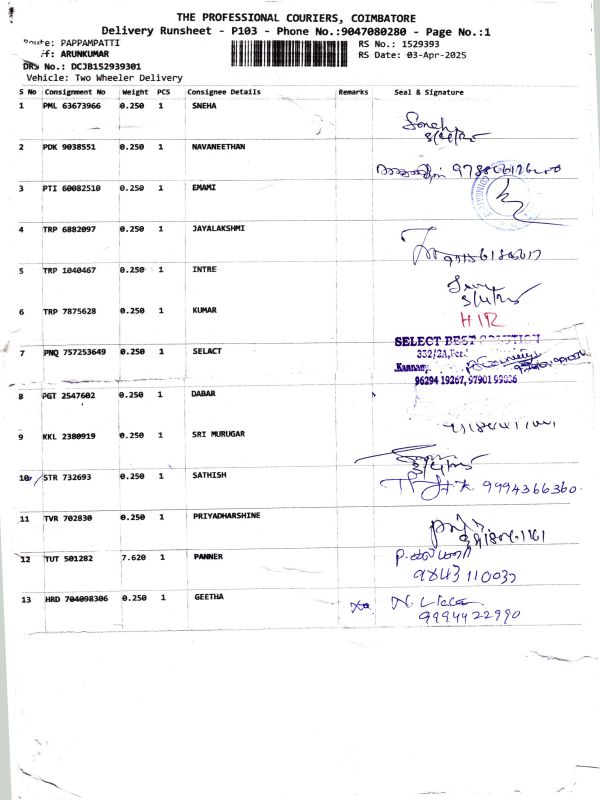 THE PROFESSIONAL COURIERS, COIMBATORE
Delivery Runsheet - P103 - Phone No.:9047080280 - Page No.:1
Route: PAPPAMPATTI
RS No.: 1529393
ff: ARUNKUMAR
RS Date: 03-Apr-2025
DRS No.: DCJB152939301
Vehicle: Two Wheeler Delivery
S No Consignment No Weight PCS Consignee Details Remarks Seal & Signature
1 PML 63673966 0.250 1 SNEHA
2 PDK 9038551 0.250 1 NAVANEETHAN
3 PTI 60082510 0.250 1 EMAMI
4 TRP 6882097 0.250 1 JAYALAKSHMI
5 TRP 1040467 0.250 1 INTRE
3/4/25
6 TRP 7875628 0.250 1 KUMAR
HIR
SELECT BEST SOLUTION
7 PNQ 757253649 0.250 1 SELACT
332/2A,
Kannam
96294 19267, 97901 99036
8 PGT 2547602 0.250 1 DABAR
9 KKL 2380919 0.250 1 SRI MURUGAR
10 STR 732693 0.250 1 SATHISH
9994366360
11 TVR 702830 0.250 1 PRIYADHARSHINE
12 TUT 501282 7.620 1 PANNER
9843110037
13 HRD 704098306 0.250 1 GEETHA
9994422990